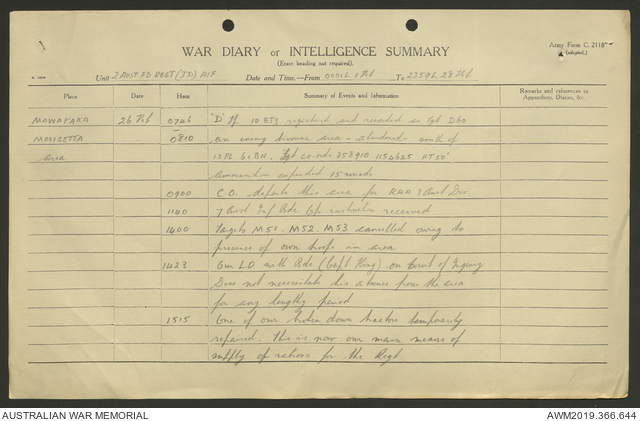 Army Form C. 2118
(Adapted.)
WAR DIARY or INTELLIGENCE SUMMARY
(Erase heading not required).
Unit 2 AUST FD REGT (JD) AIF Date and Time.—From 0001L 1 Feb To 2359L 28 Feb
Place Date Hour Summary of Events and Information Remarks and references to Appendices, Diaries, &c.
MAWARAKA 26 Feb 0746 "D" Tp 10 BTY registered and recorded as Tgt D80
MOSIGETTA 0810 an enemy bivouac area - abandoned - south of
area 13 Pl 61 BN. Tgt co-ords 358910 1154625 HT 50'
Ammunition expended 15 rounds
0900 C.O. departs this area for RAA 3 Aust Div.
1140 7 Aust Inf Bde Op instruction received
1400 Targets M51, M52, M53 cancelled owing to
presence of own troops in area
1423 Gnr L.O with Bde (Capt King) on Court of Inquiry
Does not necessitate his absence from the area
for any lengthy period
1515 One of our broken down tractors temporarily
repaired. This is now our main means of
supply of rations for the Regt.
AUSTRALIAN WAR MEMORIAL AWM2019.366.644